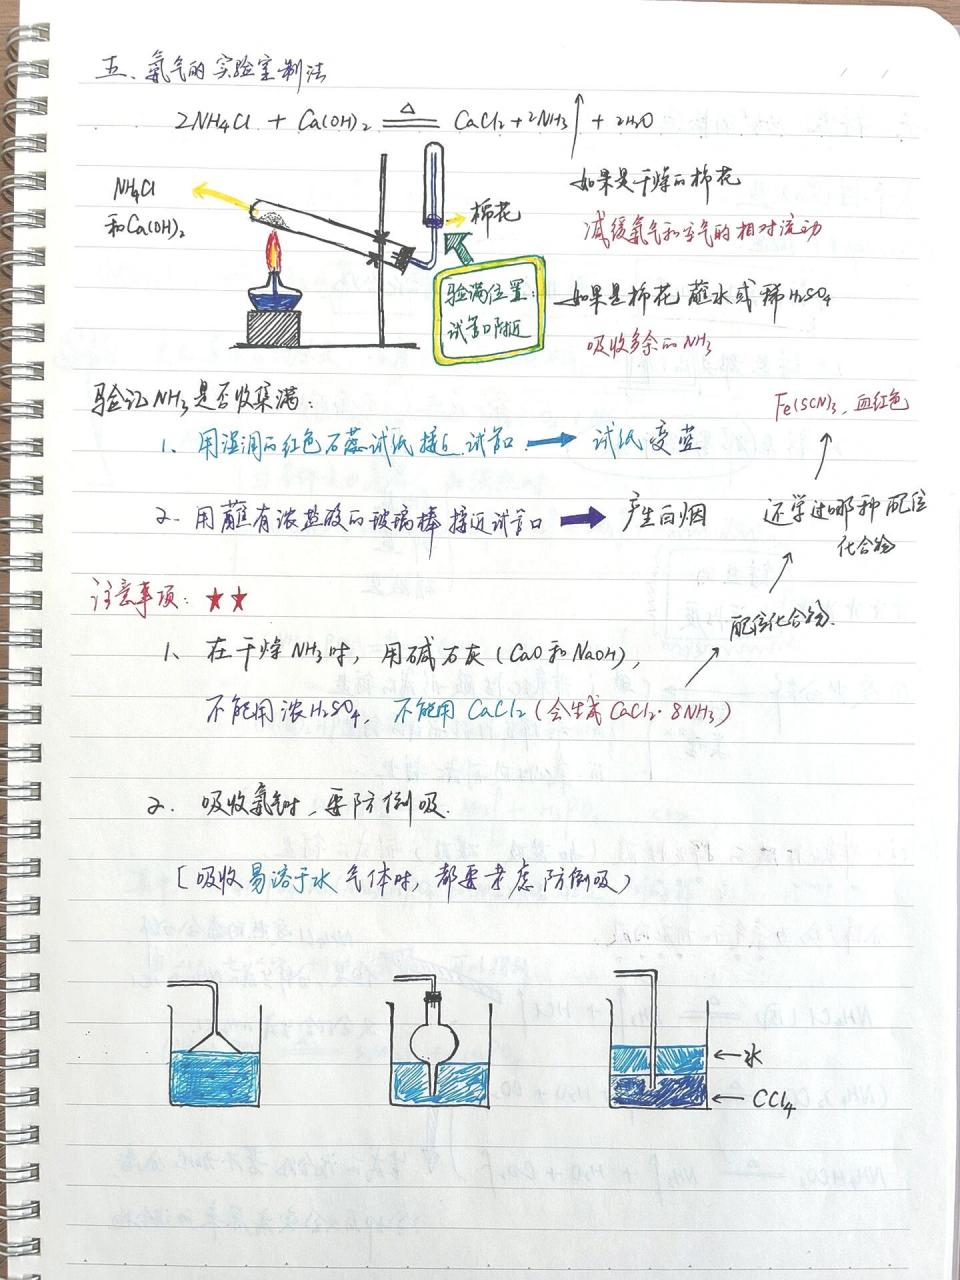 五、氨气的实验室制法
2NH4Cl + Ca(OH)2 ≜ CaCl2 + 2NH3↑ + 2H2O
NH4Cl
和Ca(OH)2
棉花
验满位置：
试管口附近
如果是干燥的棉花
减缓氨气和空气的相对流动
如果是棉花蘸水或稀H2SO4
吸收多余的NH3
验证NH3是否收集满：
1、用湿润的红色石蕊试纸接近试管口 → 试纸变蓝
2. 用蘸有浓盐酸的玻璃棒接近试管口 → 产生白烟
Fe(SCN)3，血红色
还学过哪种配位
化合物
配位化合物.
注意事项：★★
1、在干燥NH3时，用碱石灰（CaO和NaOH），
不能用浓H2SO4，不能用CaCl2（会生成CaCl2·8NH3）
2. 吸收氨气时，要防倒吸.
（吸收易溶于水气体时，都要考虑防倒吸）
←水
←CCl4